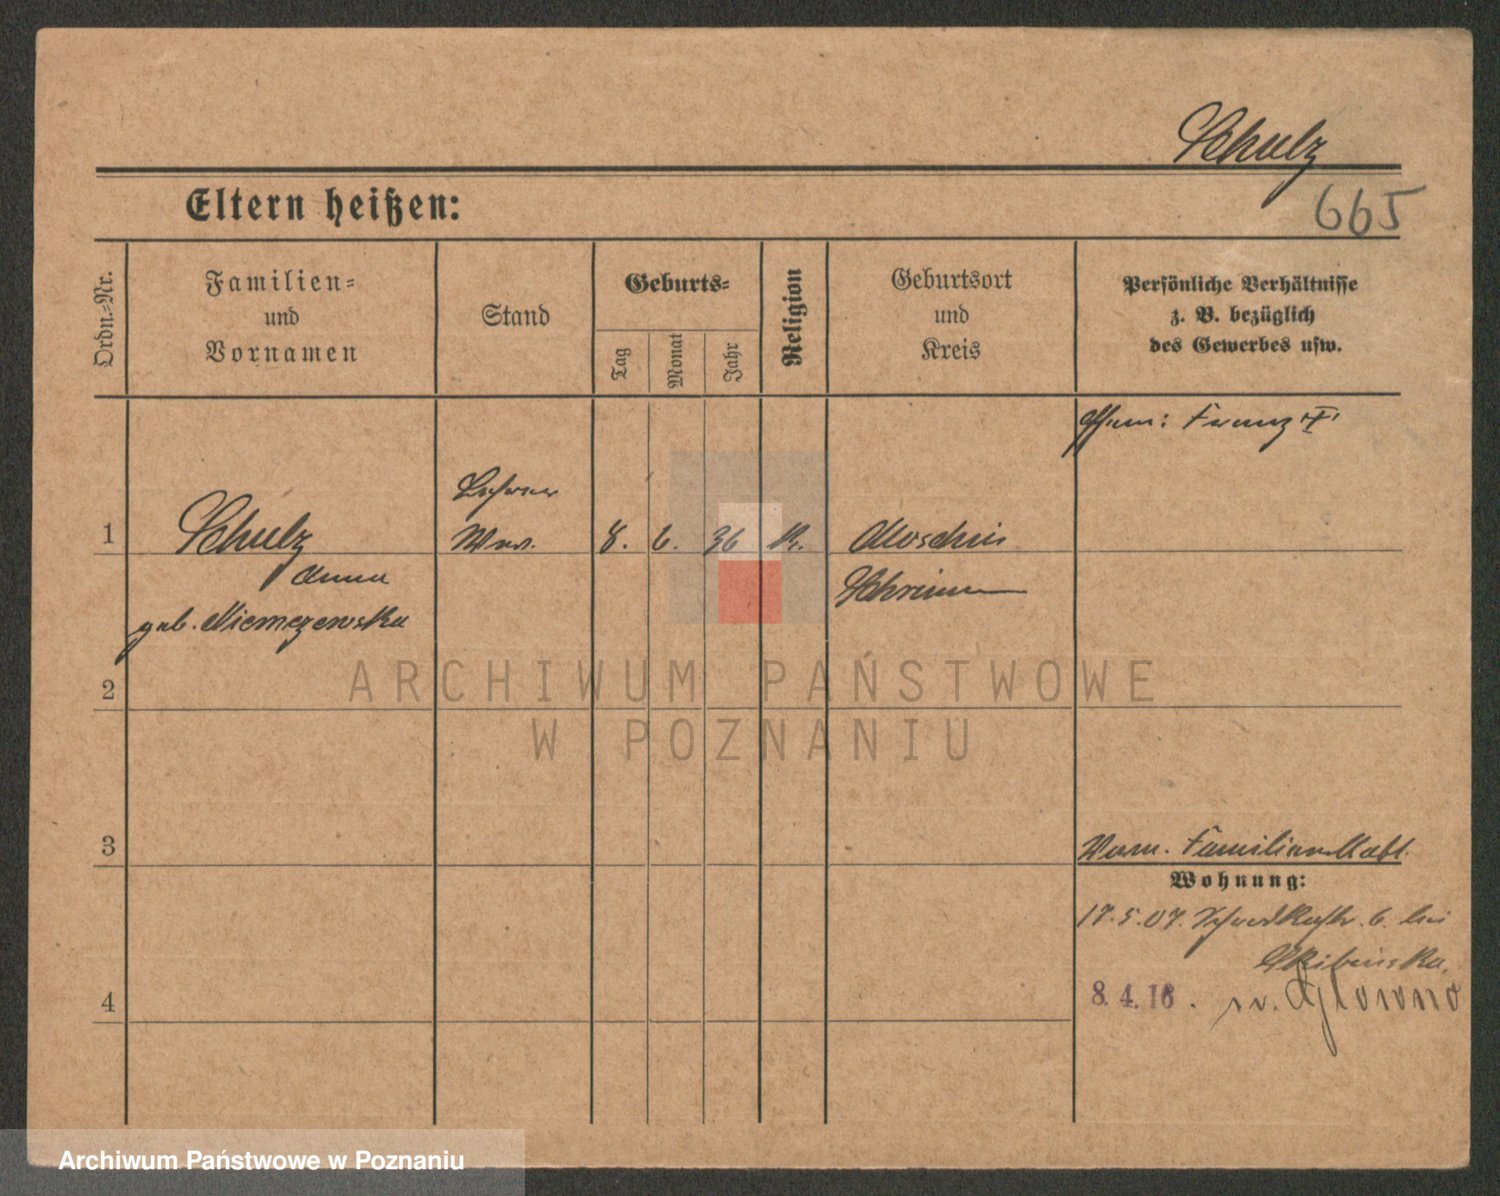 Schulz
665
Eltern heißen:
Ordn.-Nr.
Familien-
und
Vornamen
Stand
Geburts-
Tag
Monat
Jahr
Religion
Geburtsort
und
Kreis
Persönliche Verhältnisse
z. B. bezüglich
des Gewerbes usw.
Ehem: Franz "†"
Lehrer
1 Schulz Ww. 8. 6. 36 K. Moschin
Anna Schrimm
geb. Niemczewska
2
3 Familienblatt.
Wohnung:
17.5.07. 6. bei
Skibinska.
4 8.4.16. n. Glowno
ARCHIWUM PAŃSTWOWE
W POZNANIU
Archiwum Państwowe w Poznaniu